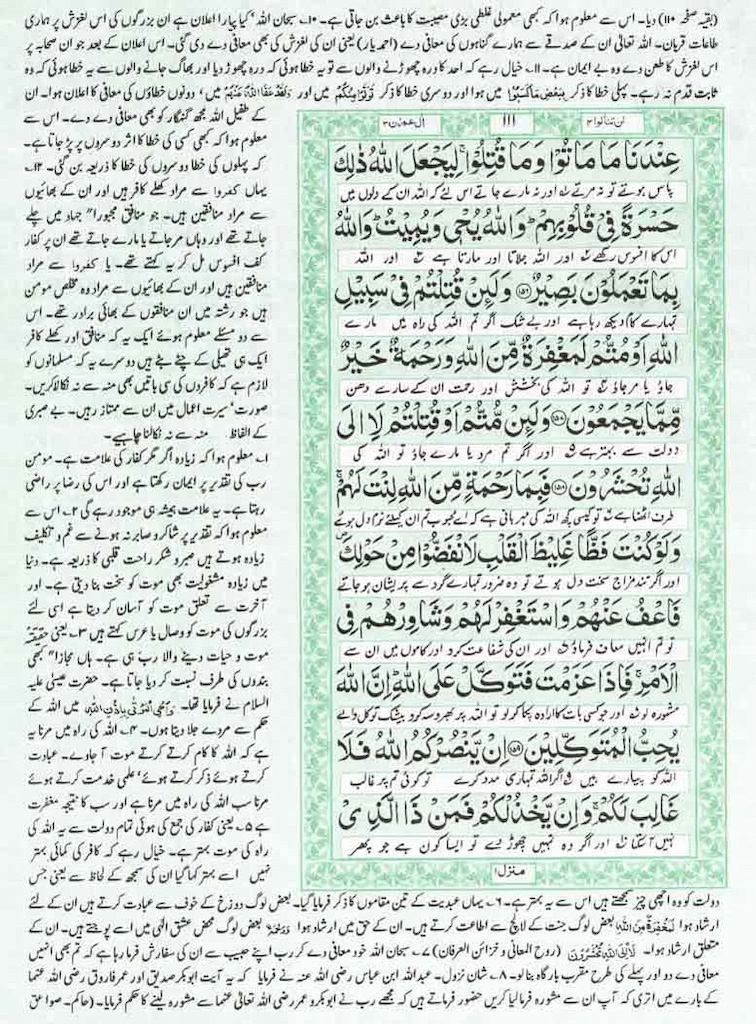 (بقیہ صفحہ ۱۱۰) دیا۔ اس سے معلوم ہوا کہ کبھی معمولی غلطی بڑی مصیبت کا باعث بن جاتی ہے۔ ۱۰۔ سبحان اللہ، کیا پیارا اعلان ہے ان بزرگوں کی اس لغزش پر ہماری
طاعات قربان۔ اللہ تعالیٰ ان کے صدقے سے ہمارے گناہوں کی معافی دے (احمد یار) یعنی ان کی لغزش کی بھی معافی دے دی گئی۔ اس اعلان کے بعد جو ان صحابہ پر
اس لغزش کا طعن دے وہ بے ایمان ہے۔ ۱۱۔ خیال رہے کہ احد کا درہ چھوڑنے والوں سے تو یہ خطا ہوئی کہ درہ چھوڑ دیا اور بھاگ جانے والوں سے یہ خطا ہوئی کہ وہ
ثابت قدم نہ رہے۔ پہلی خطا کا ذکر بِبَعْضِ مَا كَسَبُوْا میں ہوا اور دوسری خطا کا ذکر تَوَلَّوْا مِنْكُمْ میں اور وَلَقَدْ عَفَا اللّٰهُ عَنْهُمْ میں، دونوں خطاؤں کی معافی کا اعلان ہوا۔ ان
کے طفیل اللہ مجھ گنہگار کو بھی معافی دے دے۔ اس سے
معلوم ہوا کہ کبھی کسی کی خطا کا اثر دوسروں پر پڑ جاتا ہے۔
کہ پہلوں کی خطا دوسروں کی خطا کا ذریعہ بن گئی۔ ۱۲۔
یہاں کفروا سے مراد کھلے کافر ہیں اور ان کے بھائیوں
سے مراد منافقین ہیں۔ جو منافق مجبوراً جہاد میں چلے
جاتے تھے اور وہاں مر جاتے یا مارے جاتے تھے ان پر کفار
کف افسوس مل کر یہ کہتے تھے۔ یا کفروا سے مراد
منافقین ہیں اور ان کے بھائیوں سے مراد وہ مخلص مومن
ہیں جو رشتہ میں ان منافقوں کے بھائی برادر تھے۔ اس
سے دو مسئلے معلوم ہوئے ایک یہ کہ منافق اور کھلے کافر
ایک ہی تھیلی کے چٹے بٹے ہیں دوسرے یہ کہ مسلمانوں کو
لازم ہے کہ کافروں کی سی باتیں بھی منہ سے نہ نکالا کریں۔
صورت، سیرت اعمال میں ان سے ممتاز رہیں۔ بے صبری
کے الفاظ منہ سے نہ نکالنا چاہیے۔
۱۔ معلوم ہوا کہ زیادہ اگر مگر کفار کی علامت ہے۔ مومن
رب کی تقدیر پر ایمان رکھتا ہے اور اس کی رضا پر راضی
رہتا ہے۔ یہ علامت ہمیشہ ہی موجود رہے گی ۲۔ اس سے
معلوم ہوا کہ تقدیر پر شاکر و صابر نہ ہونے سے غم و تکلیف
زیادہ ہوتے ہیں صبر و شکر راحت قلبی کا ذریعہ ہے۔ دنیا
میں زیادہ مشغولیت بھی موت کو سخت بنا دیتی ہے۔ اور
آخرت سے تعلق موت کو آسان کر دیتا ہے اسی لئے
بزرگوں کی موت کو وصال یا عرس کہتے ہیں ۳۔ یعنی حقیقۃً
موت و حیات دینے والا رب ہی ہے۔ ہاں مجازاً کبھی
بندوں کی طرف نسبت کر دیا جاتا ہے۔ حضرت عیسیٰ علیہ
السلام نے فرمایا تھا۔ وَاُحْيِ الْمَوْتٰى بِاِذْنِ اللّٰهِ میں اللہ کے
حکم سے مردے جلا دیتا ہوں۔ ۴۔ اللہ کی راہ میں مرنا یہ
ہے کہ اللہ کا کام کرتے کرتے موت آ جاوے۔ عبادت
کرتے ہوئے ذکر کرتے ہوئے، علمی خدمت کرتے ہوئے
مرنا سب اللہ کی راہ میں مرنا ہے اور سب کا نتیجہ مغفرت
ہے ۵۔ یعنی کفار کی جمع کی ہوئی تمام دولت سے یہ اللہ کی
راہ کی موت بہتر ہے۔ خیال رہے کہ کافر کی کمائی بہتر
نہیں اسے بہتر کہا گیا ان کی سمجھ کے لحاظ سے یعنی جس
لن تنالوا ۴ ۱۱۱ اٰل عمرٰن ۳
عِنْدَنَا مَا مَاتُوْا وَمَا قُتِلُوْا ۚ لِيَجْعَلَ اللّٰهُ ذٰلِكَ
پاس ہوتے تو نہ مرتے اور نہ مارے جاتے اس لئے کہ اللہ ان کے دلوں میں
حَسْرَةً فِيْ قُلُوْبِهِمْ ؕ وَاللّٰهُ يُحْيٖ وَيُمِيْتُ ؕ وَاللّٰهُ
اس کا افسوس رکھے اور اللہ جلاتا اور مارتا ہے اور اللہ
بِمَا تَعْمَلُوْنَ بَصِيْرٌ ۝۱۵۶ وَلَئِنْ قُتِلْتُمْ فِيْ سَبِيْلِ
تمہارے کام دیکھ رہا ہے اور بے شک اگر تم اللہ کی راہ میں مارے
اللّٰهِ اَوْ مُتُّمْ لَمَغْفِرَةٌ مِّنَ اللّٰهِ وَرَحْمَةٌ خَيْرٌ
جاؤ یا مر جاؤ تو اللہ کی بخشش اور رحمت ان کے سارے دھن
مِّمَّا يَجْمَعُوْنَ ۝۱۵۷ وَلَئِنْ مُّتُّمْ اَوْ قُتِلْتُمْ لَاِالَى
دولت سے بہتر ہے اور اگر تم مرو یا مارے جاؤ تو اللہ کی
اللّٰهِ تُحْشَرُوْنَ ۝۱۵۸ فَبِمَا رَحْمَةٍ مِّنَ اللّٰهِ لِنْتَ لَهُمْ ۚ
طرف اٹھنا ہے تو کیسی کچھ اللہ کی مہربانی ہے کہ اے محبوب تم ان کیلئے نرم دل ہوئے
وَلَوْ كُنْتَ فَظًّا غَلِيْظَ الْقَلْبِ لَانْفَضُّوْا مِنْ حَوْلِكَ ۪
اور اگر تند مزاج سخت دل ہوتے تو وہ ضرور تمہارے گرد سے پریشان ہو جاتے
فَاعْفُ عَنْهُمْ وَاسْتَغْفِرْ لَهُمْ وَشَاوِرْهُمْ فِي
تو تم انہیں معاف فرماؤ اور ان کی شفاعت کرو اور کاموں میں ان سے
الْاَمْرِ ۚ فَاِذَا عَزَمْتَ فَتَوَكَّلْ عَلَى اللّٰهِ ؕ اِنَّ اللّٰهَ
مشورہ لو اور جو کسی بات کا ارادہ پکا کر لو تو اللہ پر بھروسہ کرو بیشک توکل والے
يُحِبُّ الْمُتَوَكِّلِيْنَ ۝۱۵۹ اِنْ يَّنْصُرْكُمُ اللّٰهُ فَلَا
اللہ کو پیارے ہیں اگر اللہ تمہاری مدد کرے تو کوئی تم پر غالب
غَالِبَ لَكُمْ ۚ وَاِنْ يَّخْذُلْكُمْ فَمَنْ ذَا الَّذِيْ
نہیں آ سکتا اور اگر وہ تمہیں چھوڑ دے تو ایسا کون ہے جو پھر
منزل ۱
دولت کو وہ اچھی چیز سمجھتے ہیں اس سے یہ بہتر ہے۔ ۶۔ یہاں عبدیت کے تین مقاموں کا ذکر فرمایا گیا۔ بعض لوگ دوزخ کے خوف سے عبادت کرتے ہیں ان کے لئے
ارشاد ہوا لَمَغْفِرَةٌ مِّنَ اللّٰهِ بعض لوگ جنت کے لالچ سے اطاعت کرتے ہیں۔ ان کے حق میں ارشاد ہوا وَرَحْمَةٌ بعض لوگ محض عشق الٰہی میں اسے پوجتے ہیں۔ ان کے
متعلق ارشاد ہوا۔ لَاِالَى اللّٰهِ تُحْشَرُوْنَ (روح المعانی و خزائن العرفان) ۷۔ سبحان اللہ خود معافی دے کر رب اپنے حبیب سے ان کی سفارش فرما رہا ہے کہ تم بھی انہیں
معافی دے دو اور پہلے کی طرح مقرب بارگاہ بنا لو۔ ۸۔ شان نزول۔ عبداللہ ابن عباس رضی اللہ عنہ نے فرمایا کہ یہ آیت ابوبکر صدیق اور عمر فاروق رضی اللہ عنہما
کے بارے میں اتری کہ آپ ان سے مشورہ فرمالیا کریں حضور فرماتے ہیں کہ مجھے رب نے ابوبکر و عمر رضی اللہ تعالیٰ عنہما سے مشورہ لینے کا حکم فرمایا۔ (حاکم۔ صواعق